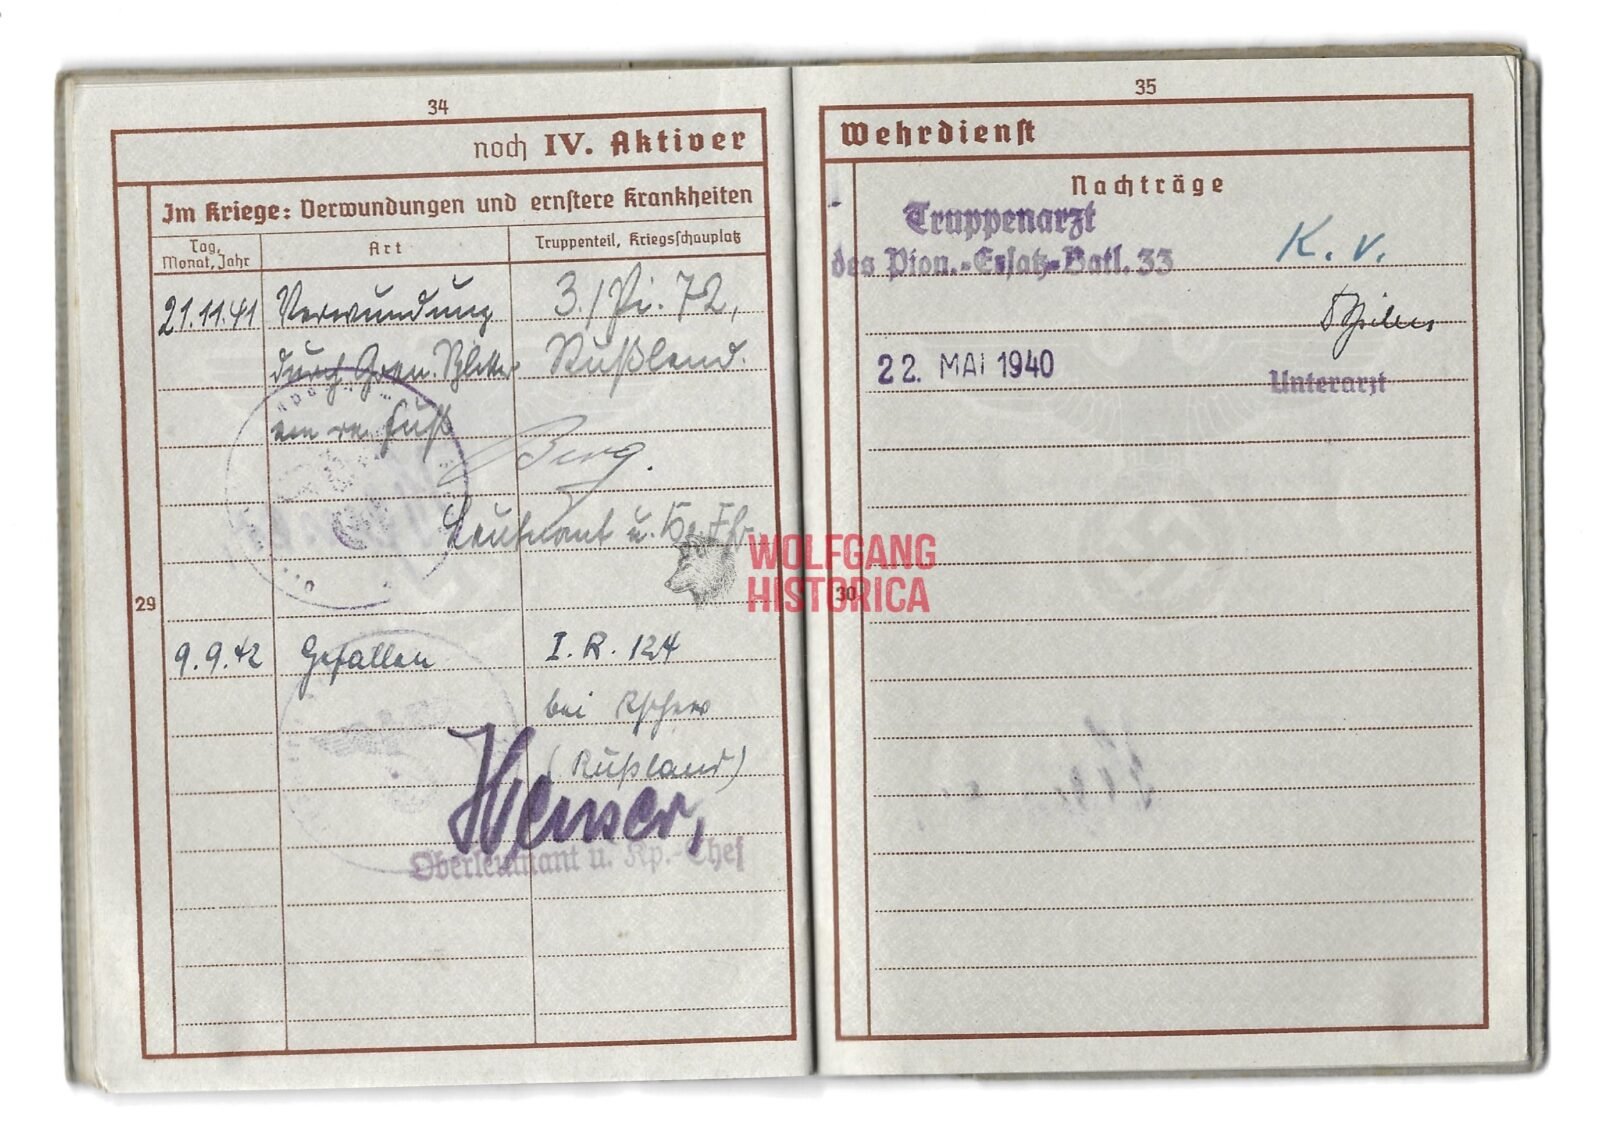 34
noch IV. Aktiver
Im Kriege: Verwundungen und ernstere Krankheiten
Tag, Monat, Jahr
Art
Truppenteil, Kriegsschauplatz
21.11.41
Verwundung
3./Pi. 72,
durch Gran. Splitter
Rußland.
am re. Fuß
Berg.
Leutnant u.
29
9.9.42
Gefallen
I. R. 124
bei Rschew
(Rußland)
Oberleutnant u. Kp.-Chef
WOLFGANG
HISTORICA
35
Wehrdienst
Nachträge
Truppenarzt
des Pion.-Ersatz-Batl. 33
K. v.
22. MAI 1940
Unterarzt
30